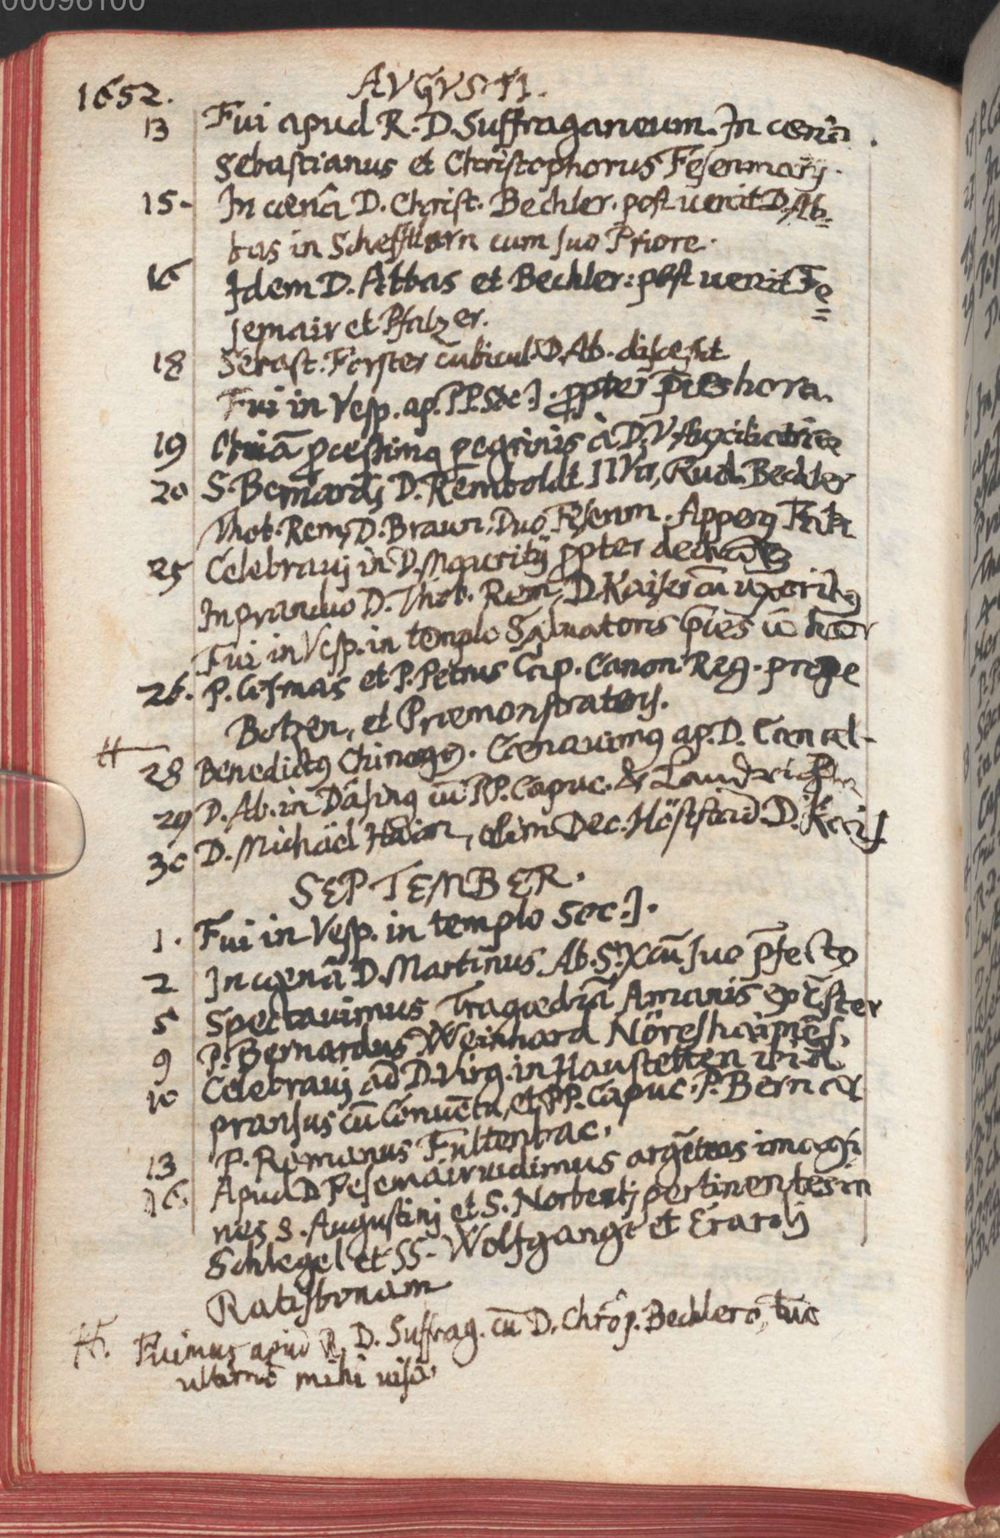 00096100
1652. AVGVSTI.
13 Fui apud R. D. Suffraganeum. In coenâ
Sebastianus et Christophorus Fesenmarÿ.
15. In coenâ D. Christ. Bechler. post uenit D. Ab=
bas in Schefftlarn cum suo Priore.
16 Idem D. Abbas et Bechler: post uenit Fe=
semair et Pfalzer.
18 Sebast. Forster cubicul. D. Ab. discessit
Fui in Vesp. ap. PP. Soc. J. ppter hora.
19 à D. V.
20 S. Bernardj D. Remboldt IIVir, Rud. Bechler
Thob. Rem, D. Braun. Duo Fesenm.
25 Celebrauj in D. Mauritij ppter
In prandio D. Thob. Rem, D. Kaiser cū uxoribg
Fui in Vesp. in templo Saluatoris
26. P. Cosmas et P. Petrus Cap. Canon. Reg. prope
Botzen, et Præmonstratens.
H 28 Benedictg Coenauimg ap. D. Cancel-
29 D. Ab. in Dasing cū PP. Capuc. &
30 D. Michaël olim Dec. D.
SEPTEMBER.
1. Fui in Vesp. in templo Soc. J.
2 In coenâ D. Martinus Ab. S. X cū suo pfecto
5 Spectauimus Tragoediā Amanis
9 P. Bernardus Weinhard
10 Celebrauj ad D. Virg. in Haustetten ibid.
pransus cū Conuētu, et PP. Capuc. P. Bern et
13 P. Romanus Fultenbac.
16. Apud D. Fesemair uidimus argēteas imagi
nes S. Augustinj et S. Norbertj pertinentes in
Schlegel et SS. Wolfgangi et Erardj
Ratisbonam
H. Fuimus apud R. D. Suffrag. cū D. Chrōp. Bechlero, tūc
ultimò mihi uisō.